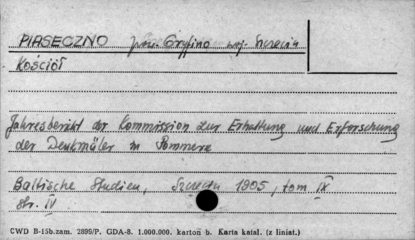 PIASECZNO pow. Gryfino woj. Szczecin
Kościół
Jahresbericht der Kommission zur Erhaltung und Erforschung
der Denkmäler in Pommern
Baltische Studien, Szczecin 1905, tom IX
str. IV
CWD B-15b.zam. 2899/P. GDA-8. 1.000.000. karton b. Karta katal. (z liniat.)